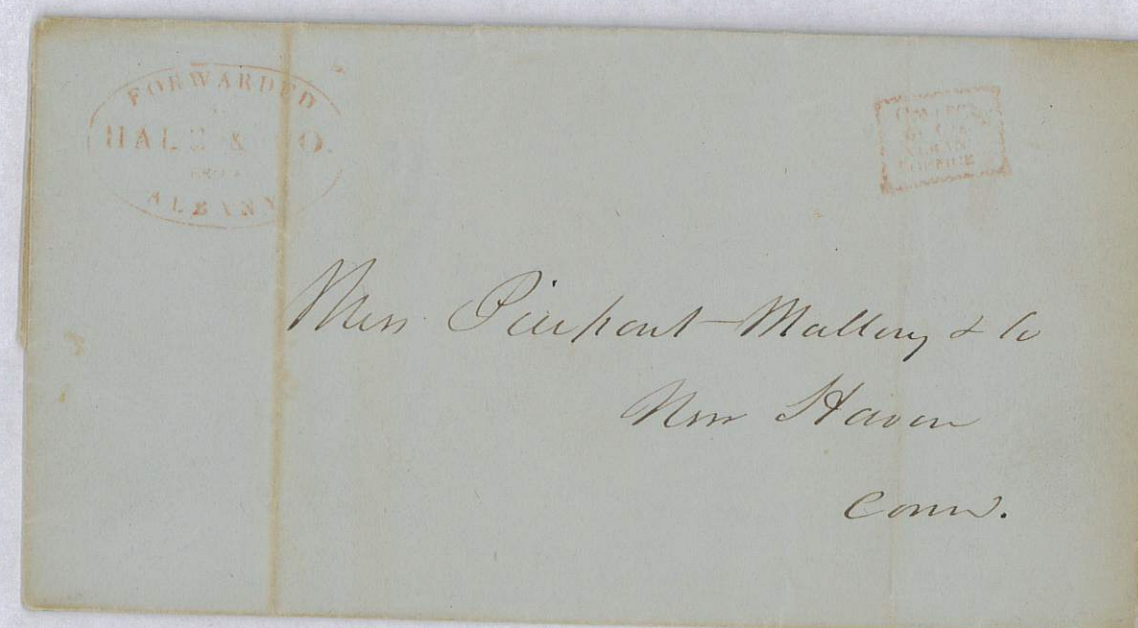 FORWARDED
HALE & CO.
FROM
ALBANY
Mess Pierpont Mallory & Co
New Haven
Conn.